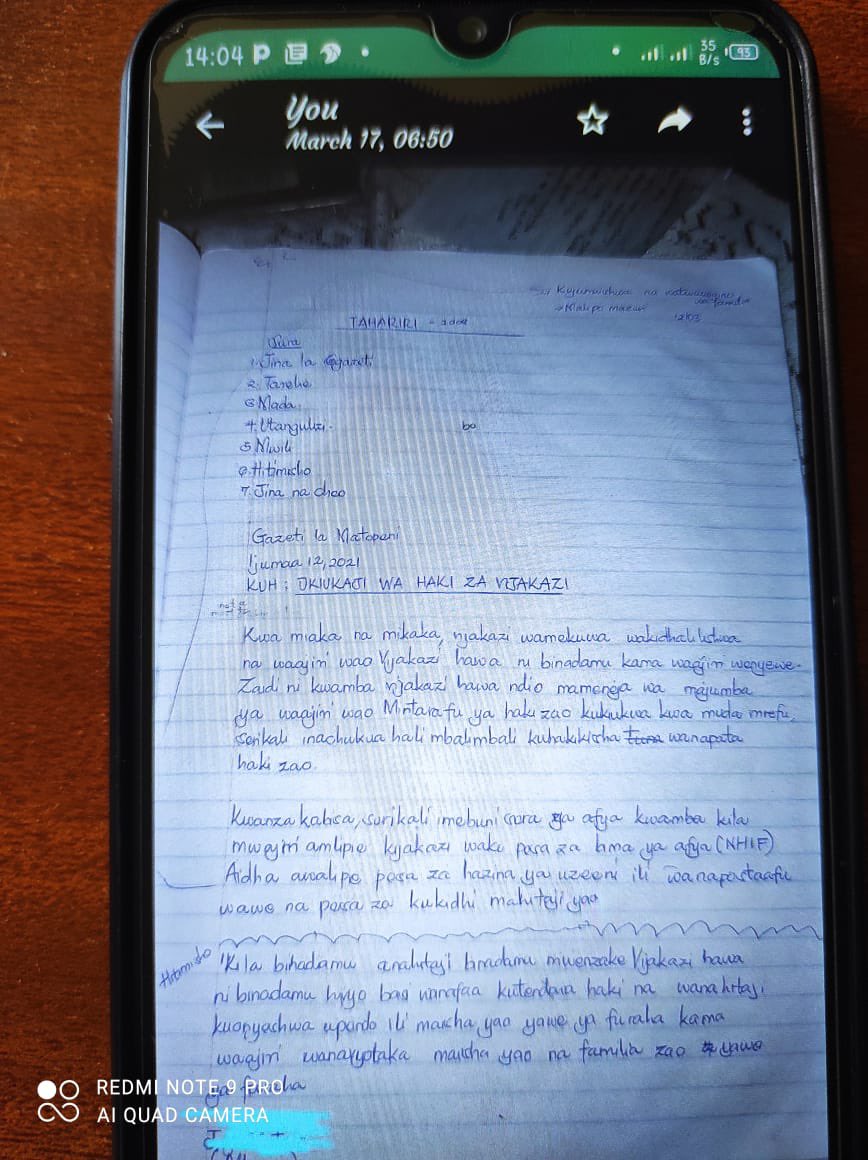 14:04
35 B/s 93
You
March 17, 06:50
Kujumuishwa na
Malipo
12/03
TAHARIRI -
Sura
1. Jina la Gazeti
2. Tarehe
3 Mada.
4. Utangulizi.
bo
5 Mwili
6. Hitimisho
7. Jina na cheo
Gazeti la Matopeni
Ijumaa 12, 2021
KUH : UKIUKAJI WA HAKI ZA VIJAKAZI
Kwa miaka na mikaka, vijakazi wamekuwa
na waajiri wao Vijakazi hawa ni binadamu kama waajiri wenyewe.
Zaidi ni kwamba vijakazi hawa ndio mameneja wa majumba
ya waajiri wao Mintarafu ya haki zao kukiukwa kwa muda mrefu,
serikali inachukua hali mbalimbali kuhakikisha wanapata
haki zao.
Kwanza kabisa, surikali imebuni sera ya afya kwamba kila
mwajiri amlipie kijakazi wake pesa za bima ya afya (NHIF)
Aidha awalipe pesa za hazina ya uzeeni ili wanapostaafu
wawe na pesa za kukidhi mahitaji yao
Hitimisho
Kila binadamu anahitaji binadamu mwenzake Vijakazi hawa
ni binadamu hivyo basi wanafaa kutendewa haki na wanahitaji
kuonyeshwa upendo ili maisha yao yawe ya furaha kama
waajiri wanavyotaka maisha yao na familia zao yawe
ya furaha
REDMI NOTE 9 PRO
AI QUAD CAMERA